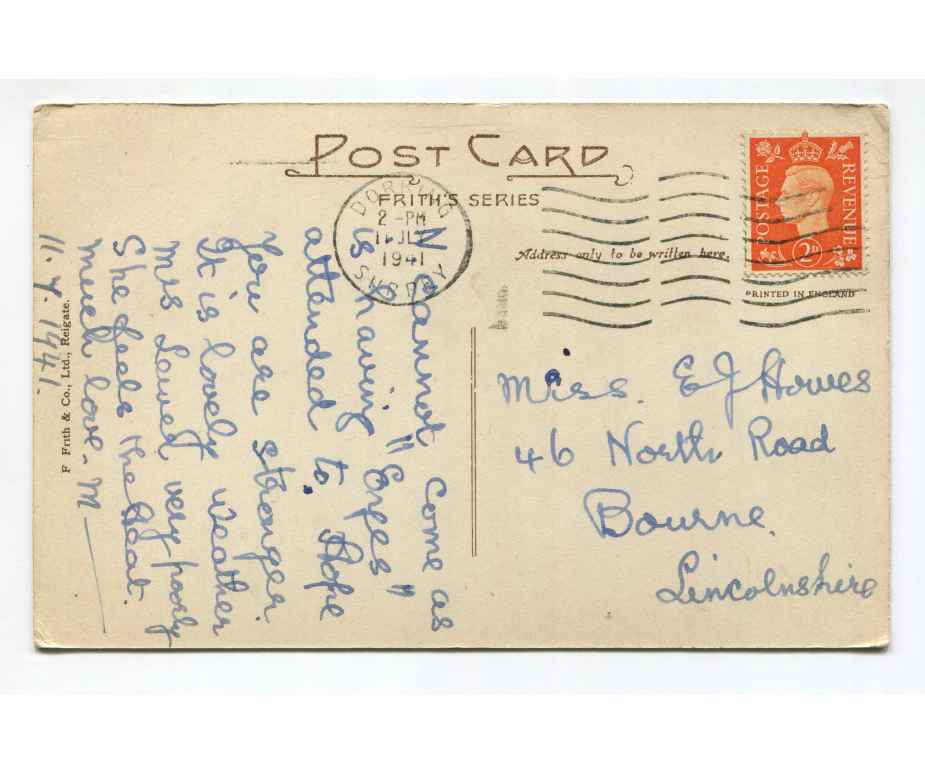 POST CARD
FRITH'S SERIES
Address only to be written here.
POSTAGE
REVENUE
2D
PRINTED IN ENGLAND
DORKING
2 - PM
11 JLY
1941
SURREY
N cannot come as
is having "Eyes"
attended to. Hope
You are stronger.
It is lovely weather
Mrs very poorly
She feels the Heat.
much love - M
11. 7. 1941.
F Frith & Co., Ltd., Reigate.
Miss. E J Howes
46 North Road
Bourne.
Lincolnshire